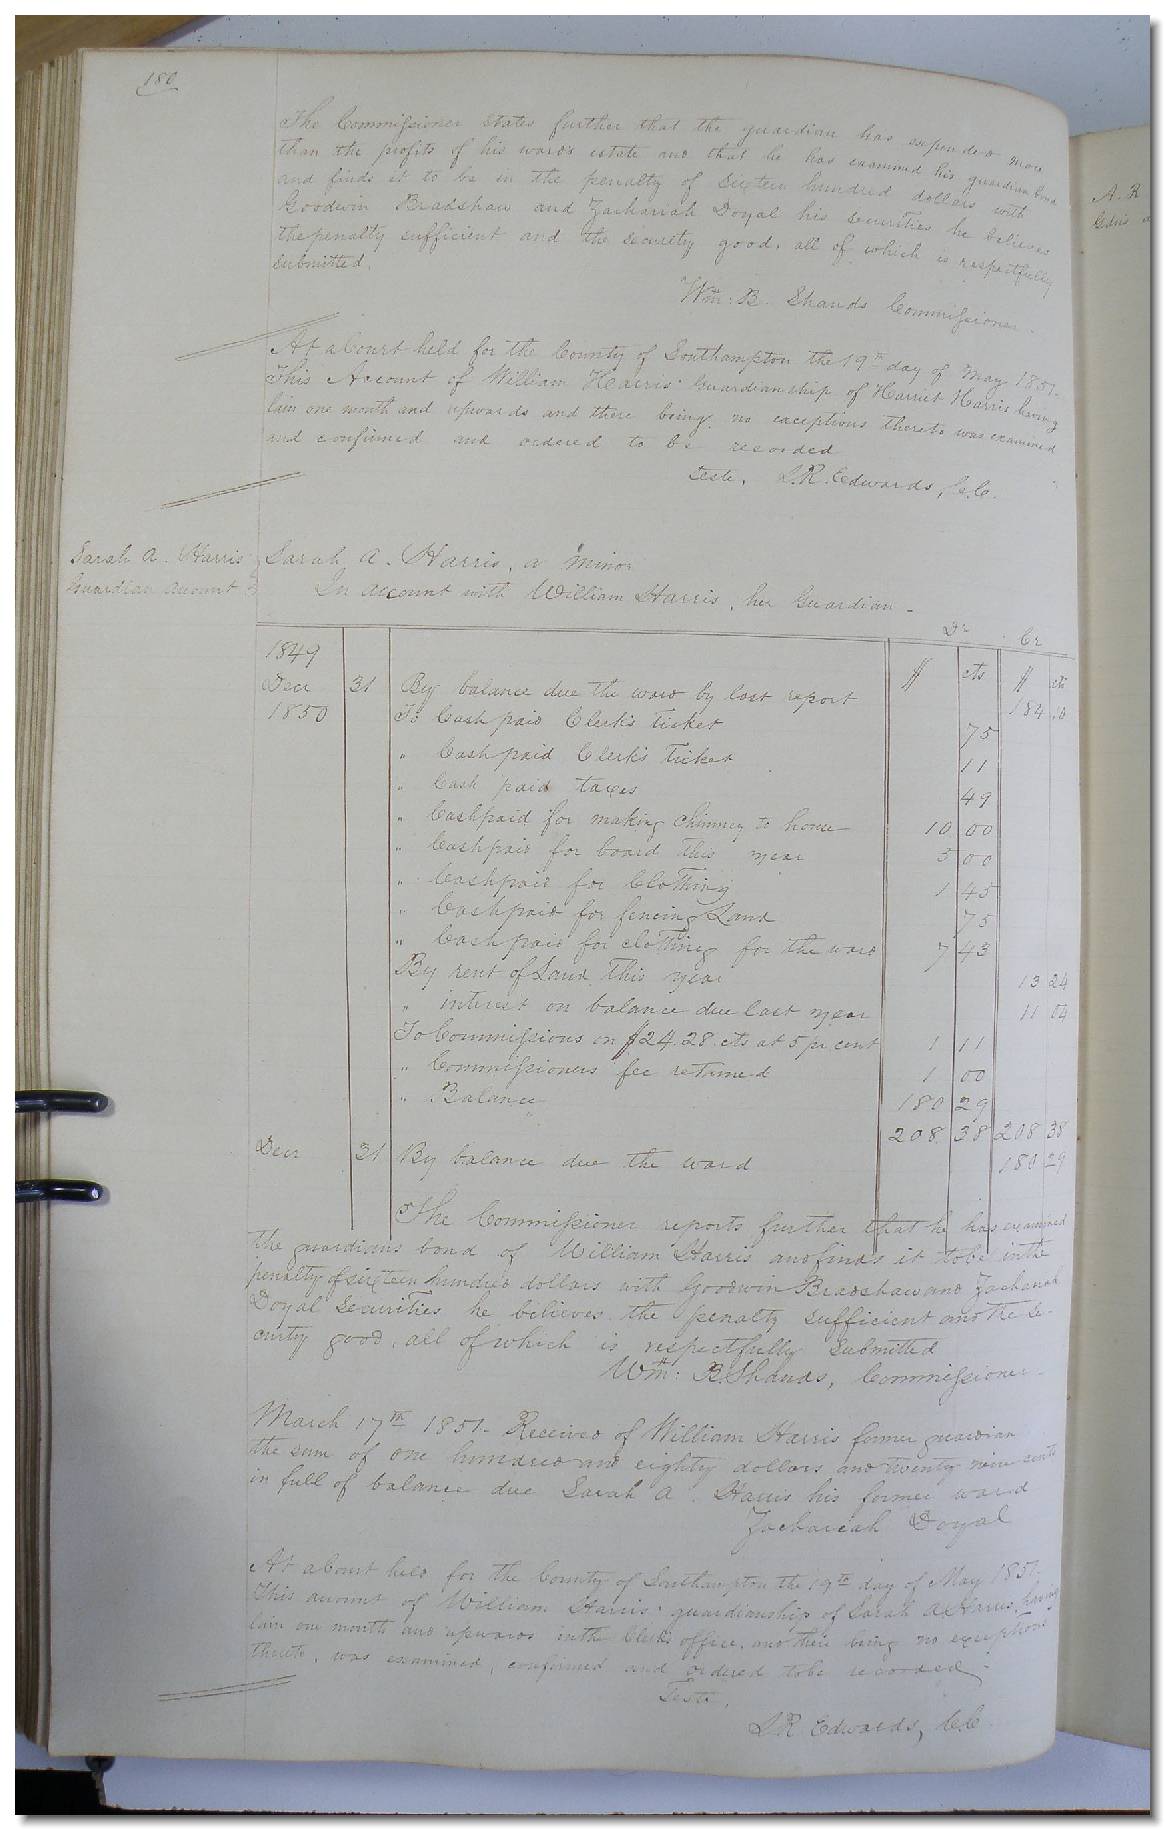 180
The Commissioner states further that the guardian has expended more
than the profits of his wards estate and that he has examined his guardian bond
and finds it to be in the penalty of sixteen hundred dollars with
Goodwin Bradshaw and Zachariah Doyal his securities he believes
the penalty sufficient and the security good. all of which is respectfully
submitted.
Wm. B. Shands Commissioner.
At a Court held for the County of Southampton the 19th day of May 1851.
This Account of William Harris' Guardianship of Harriet Harris having
lain one month and upwards and there being no exceptions thereto was examined
and confirmed and ordered to be recorded
Teste, L.R. Edwards, C.C.
A. R
Gdn's a
Sarah A. Harris
Guardian account
Sarah A. Harris, a minor
In account with William Harris, her Guardian -
Dr Cr
1849 $ cts $ cts
Decr 31 By balance due the ward by last report 184 10
1850 To Cash paid Clerk's ticket 75
" Cash paid Clerks Ticket 11
" Cash paid taxes 49
" Cash paid for making chimney to house 10 00
" Cash paid for board this year 5 00
" Cash paid for Clothing 1 45
" Cash paid for fencing Land 75
" Cash paid for clothing for the ward 7 43
By rent of Land this year 13 24
" interest on balance due last year 11 04
To Commissions on $24.28 cts at 5 pr cent 1 11
" Commissioners fee returned 1 00
" Balance 180 29
208 38 208 38
Decr 31 By balance due the ward 180 29
The Commissioner reports further that he has examined
the guardians bond of William Harris and finds it to be in the
penalty of sixteen hundred dollars with Goodwin Bradshaw and Zachariah
Doyal Securities he believes the penalty sufficient and the se-
curity good, all of which is respectfully submitted
Wm: B. Shands, Commissioner.
March 17th 1851. Received of William Harris former guardian
the sum of one hundred and eighty dollars and twenty nine cents
in full of balance due Sarah A. Harris his former ward
Zachariah Doyal
At a Court held for the County of Southampton the 19th day of May 1851.
This account of William Harris' guardianship of Sarah A. Harris, having
lain one month and upwards in the Clerks office, and there being no exceptions
thereto, was examined, confirmed and ordered to be recorded.
Teste,
L.R. Edwards, C.C.